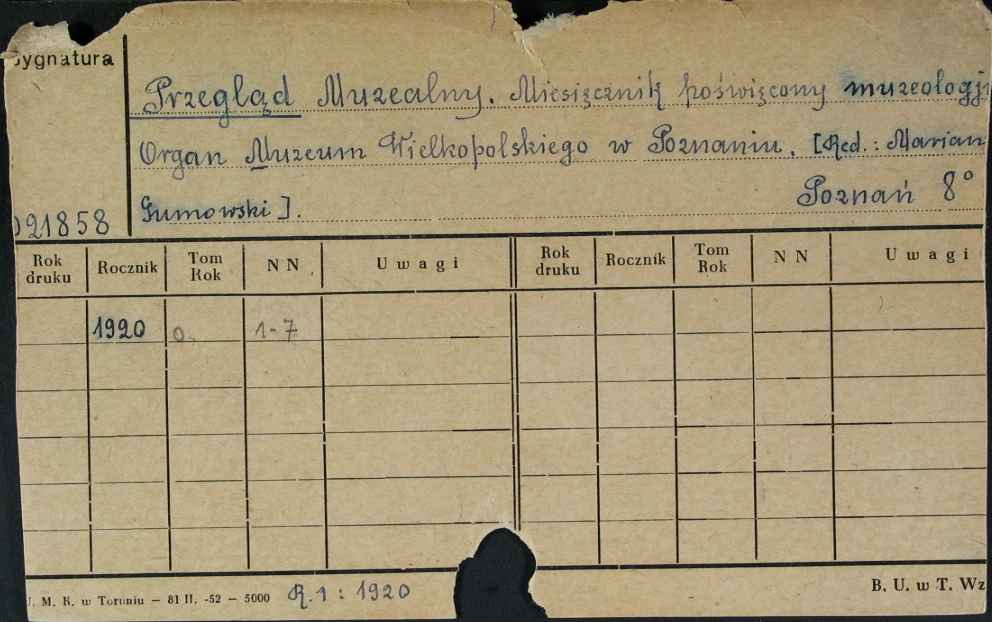 Sygnatura
Przegląd Muzealny. Miesięcznik poświęcony muzeologji
Organ Muzeum Wielkopolskiego w Poznaniu. [Red.: Marian
Gumowski].
Poznań 8°
021858
Rok druku Rocznik Tom Rok NN Uwagi Rok druku Rocznik Tom Rok NN Uwagi
1920 0. 1-7
U. M. K. w Toruniu — 81 II. -52 — 5000 R.1 : 1920 B. U. w T. Wz